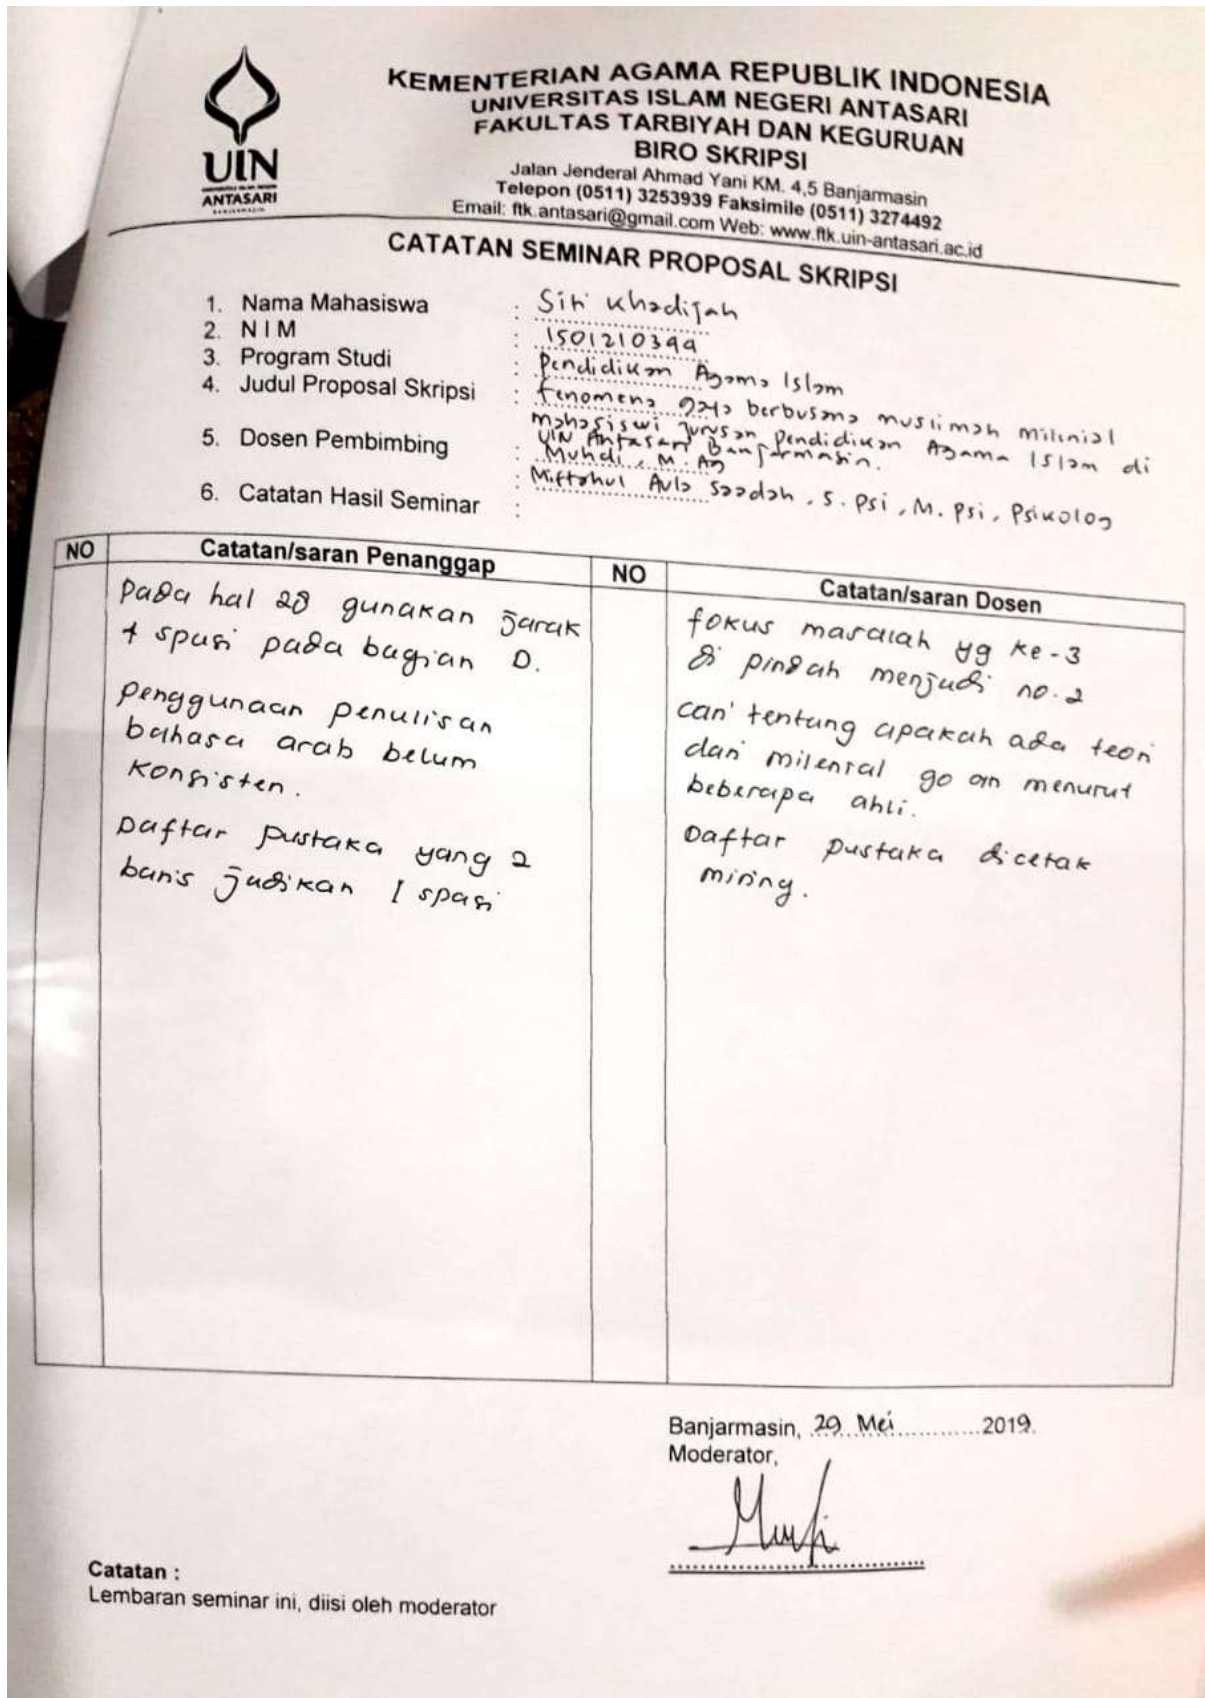 UIN
ANTASARI
KEMENTERIAN AGAMA REPUBLIK INDONESIA
UNIVERSITAS ISLAM NEGERI ANTASARI
FAKULTAS TARBIYAH DAN KEGURUAN
BIRO SKRIPSI
Jalan Jenderal Ahmad Yani KM. 4,5 Banjarmasin
Telepon (0511) 3253939 Faksimile (0511) 3274492
Email: ftk.antasari@gmail.com Web: www.ftk.uin-antasari.ac.id
CATATAN SEMINAR PROPOSAL SKRIPSI
1. Nama Mahasiswa : Siti Khadijah
2. N I M : 1501210399
3. Program Studi : Pendidikan Agama Islam
4. Judul Proposal Skripsi : fenomena gaya berbusana muslimah milinial
mahasiswi jurusan Pendidikan Agama Islam di
UIN Antasari Banjarmasin.
5. Dosen Pembimbing : Muhdi, M. Ag
: Miftahul Aula Saadah, S. Psi, M. Psi, Psikolog
6. Catatan Hasil Seminar :
NO Catatan/saran Penanggap
Pada hal 28 gunakan jarak
spasi pada bagian D.
penggunaan penulisan
bahasa arab belum
konsisten.
Daftar pustaka yang 2
baris jadikan 1 spasi
NO Catatan/saran Dosen
fokus masalah yg ke-3
di pindah menjadi no. 2
cari tentang apakah ada teori
dari milenial menurut
beberapa ahli.
Daftar pustaka dicetak
miring.
Banjarmasin, 29 Mei 2019.
Moderator,
Catatan :
Lembaran seminar ini, diisi oleh moderator